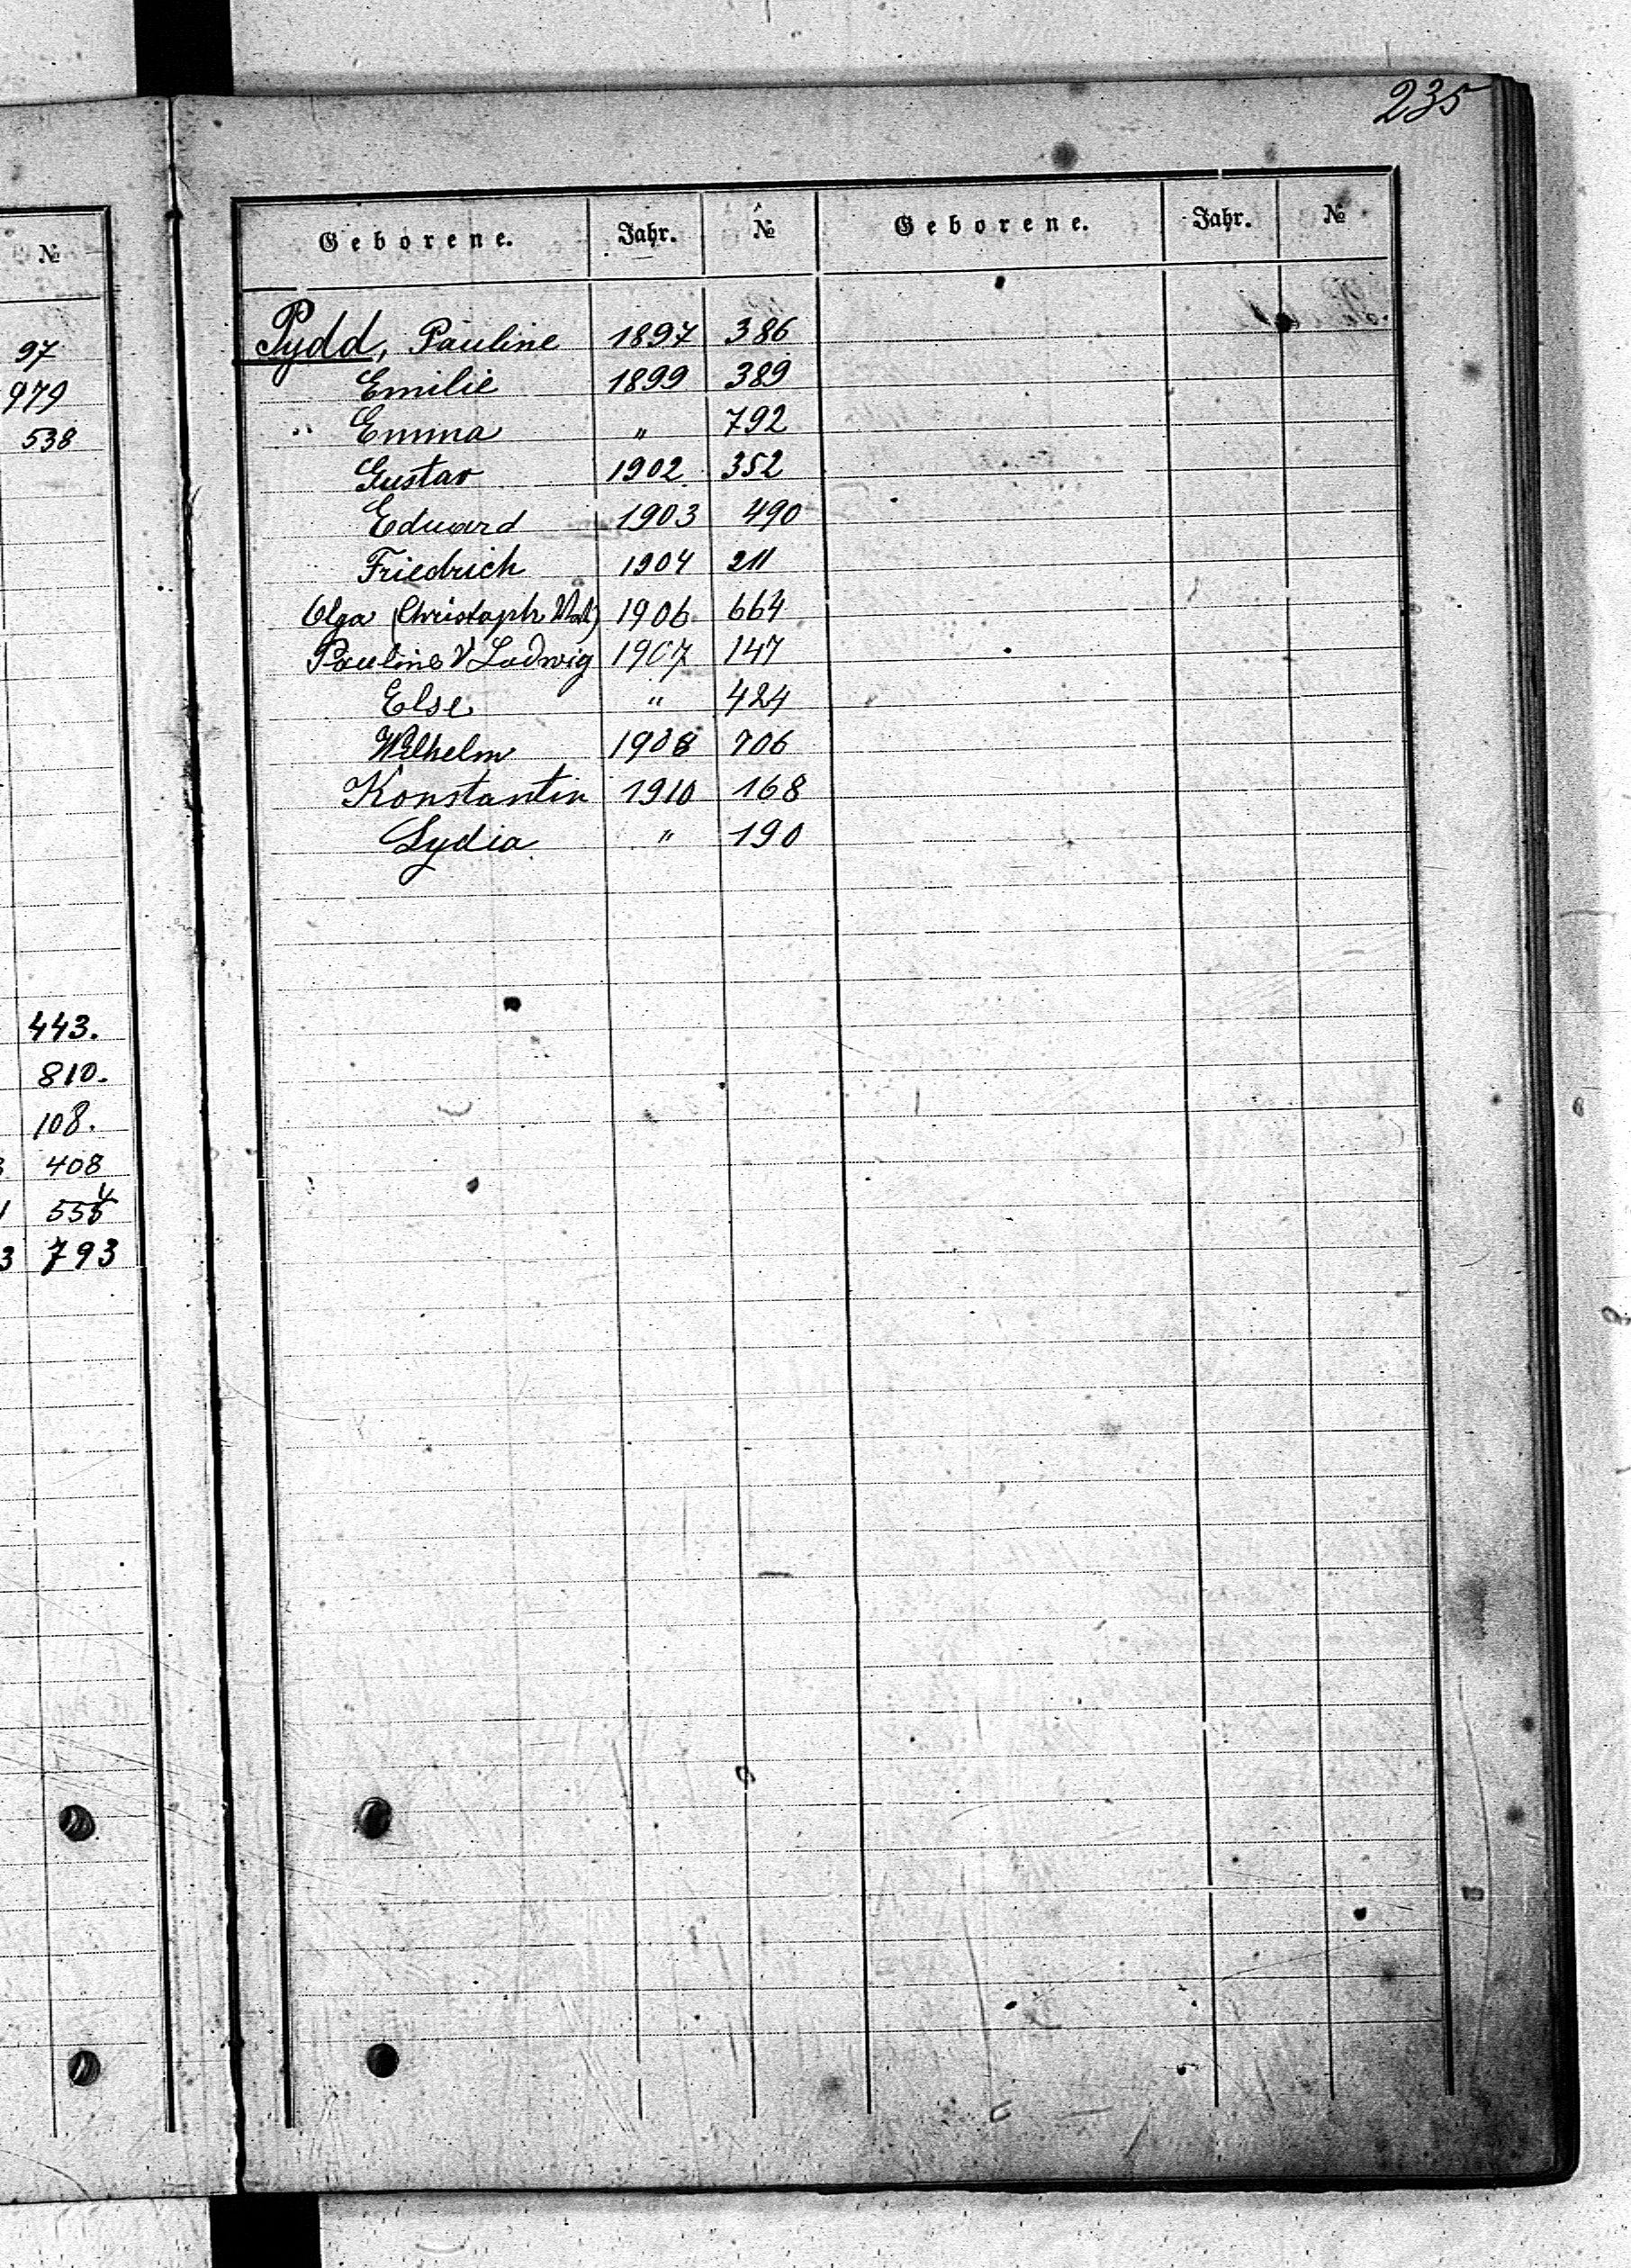 235
№
97
979
538
443.
810.
108.
408
793
Geborene. Jahr. № Geborene. Jahr. №
Pydd, Pauline 1897 386
Emilie 1899 389
" Emma " 792
Gustav 1902 352
Eduard 1903 490
Friedrich 1904 211
Olga (Christoph 1906 664
Pauline V Ludwig 1907 147
Else " 424
Wilhelm 1908 706
Konstantin 1910 168
Lydia " 190